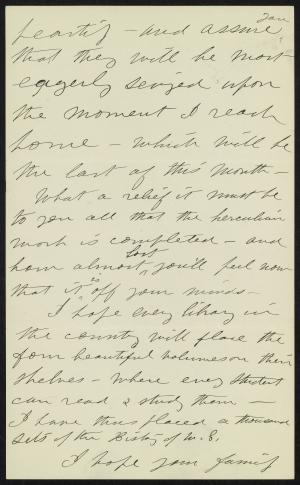 heartily – and assure you
that they will be most
eagerly seized upon
the moment I reach
home – which will be
the last of this month –
What a relief it must be
to you all that the herculean
work is completed – and
how almost lost you'll feel now
that it is off your minds –
I hope every library in
the country will place the
four beautiful volumes on their
shelves – where every student
can read & study them –
I have thus placed a thousand
sets of the History of W. S.
I hope your family